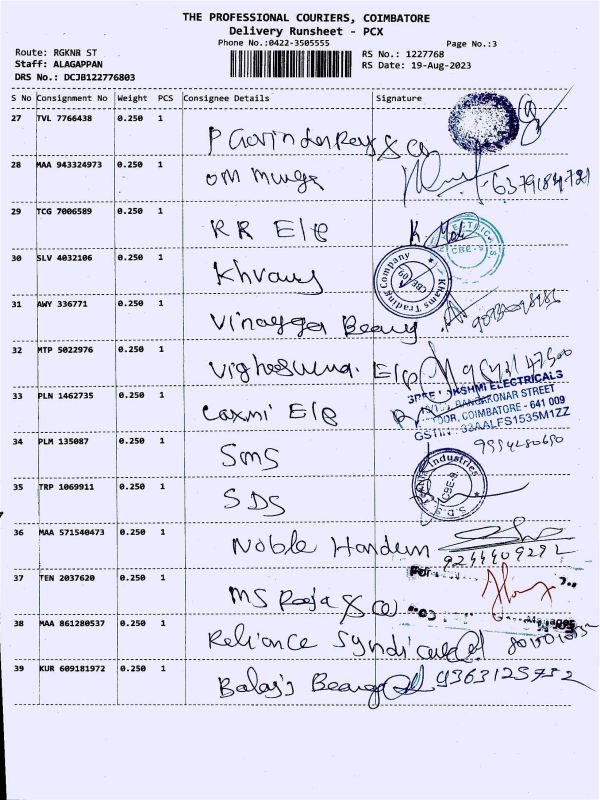 THE PROFESSIONAL COURIERS, COIMBATORE
Delivery Runsheet - PCX
Phone No.:0422-3505555
Page No.:3
Route: RGKNR ST
RS No.: 1227768
Staff: ALAGAPPAN
RS Date: 19-Aug-2023
DRS No.: DCJB122776803
S No Consignment No Weight PCS Consignee Details Signature
27 TVL 7766438 0.250 1
P Govinda & Co
28 MAA 943324973 0.250 1
OM Muruga 6379184721
29 TCG 7006589 0.250 1
RR Ele
30 SLV 4032106 0.250 1
Khams Trading Company CBE-9
31 AWY 336771 0.250 1
Vinayaga Bearing
32 MTP 5022976 0.250 1
Vigheswara. Ele
33 PLN 1462735 0.250 1
Laxmi Ele
SREE LAKSHMI ELECTRICALS
RANGAKONAR STREET
COIMBATORE - 641 009
GSTIN : 33AALFS1535M1ZZ
34 PLM 135087 0.250 1
SMS
35 TRP 1069911 0.250 1
SDS
Industries CBE-9
36 MAA 571540473 0.250 1
Noble Hardwn
9244409292
37 TEN 2037620 0.250 1
MS Raja & Co
For
38 MAA 861280537 0.250 1
Reliance Syndicate
39 KUR 609181972 0.250 1
Balaji Bearing 9363125732